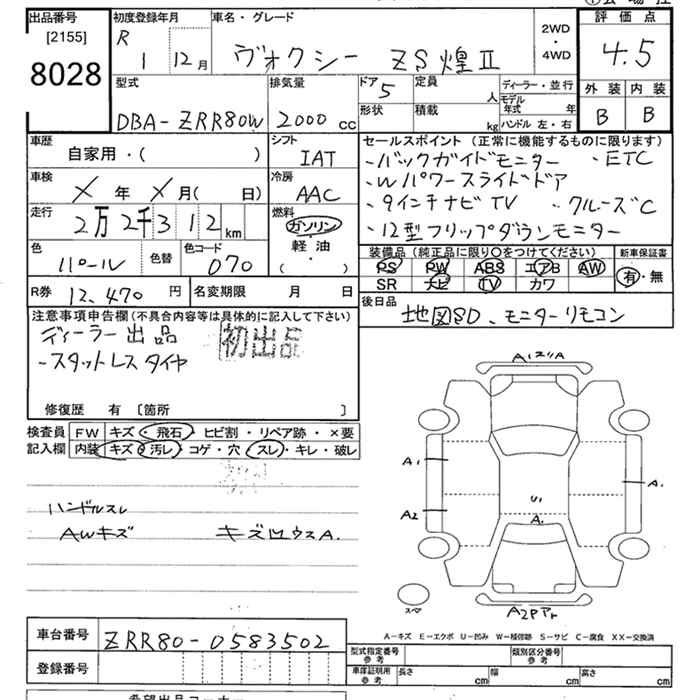 出品番号
[2155]
8028
初度登録年月
R 1年 12月
車名・グレード
ヴォクシー ZS煌Ⅱ
2WD
4WD
評価点
4.5
外装 内装
B B
型式
DBA-ZRR80W
排気量
2000 cc
ドア 5
定員 人
形状
積載 kg
ディーラー・並行
モデル年式 年
ハンドル 左・右
車歴
自家用・( )
シフト
IAT
セールスポイント(正常に機能するものに限ります)
・バックガイドモニター ・ETC
・Wパワースライドドア
・9インチナビTV ・クルーズC
・12型フリップダウンモニター
車検
X年 X月( 日)
冷房
AAC
走行
2万2千312km
燃料
ガソリン
軽油
( )
色
パール
色替
色コード
070
装備品(純正品に限り○をつけてください)
PS PW ABS エアB AW
SR ナビ TV カワ
新車保証書
有・無
R券 12,470円
名変期限 月 日
後日品
地図SD、モニターリモコン
注意事項申告欄(不具合内容等は具体的に記入して下さい)
ディーラー出品 初出品
・スタットレスタイヤ
修復歴 有 〔箇所 〕
検査員記入欄
FW キズ・飛石・ヒビ割・リペア跡・×要
内装 キズ・汚レ・コゲ・穴・スレ・キレ・破レ
ハンドルスレ
AWキズ キズ凹ウスA.
A1 A2 A. U1 A.
スペア
A-キズ E-エクボ U-凹み W-補修跡 S-サビ C-腐食 XX-交換済
車台番号
ZRR80-0583502
登録番号
型式指定番号 参考
類別区分番号 参考
車庫証明用 参考 長さ cm 幅 cm 高さ cm
希望出品コーナー